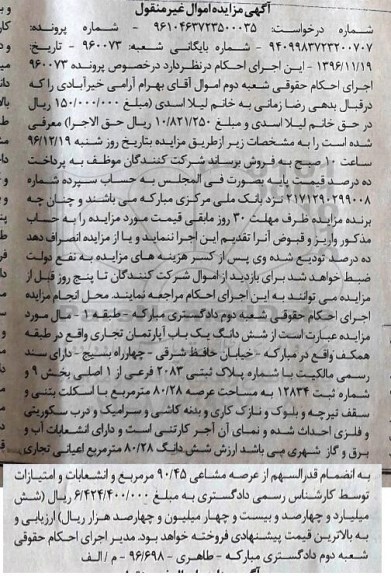 آگهی مزایده اموال غیر منقول
شماره درخواست: ۹۶۱۰۴۶۳۷۲۳۵۰۰۰۳۵ - شماره پرونده:
۹۴۰۹۹۸۳۷۲۳۲۰۰۷۰۷ - شماره بایگانی شعبه: ۹۶۰۰۷۳ - تاریخ:
۱۳۹۶/۱۱/۱۹ - این اجرای احکام درنظر دارد درخصوص پرونده ۹۶۰۰۷۳
اجرای احکام حقوقی شعبه دوم اموال آقای بهرام آرامی خیرآبادی را که
درقبال بدهی رضا زمانی به خانم لیلا اسدی (مبلغ ۱۵۰/۰۰۰/۰۰۰ ریال
در حق خانم لیلا اسدی و مبلغ ۱۰/۸۲۱/۲۵۰ ریال حق الاجرا) معرفی
شده است را به مشخصات زیر ازطریق مزایده بتاریخ روز شنبه ۹۶/۱۲/۱۹
ساعت ۱۰ صبح به فروش برساند شرکت کنندگان موظف به پرداخت
ده درصد قیمت پایه بصورت فی المجلس به حساب سپرده شماره
۲۱۷۱۲۹۰۲۹۹۰۰۸ نزد بانک ملی مرکزی مبارکه می باشند و چنان چه
برنده مزایده ظرف مهلت ۳۰ روز مابقی قیمت مورد مزایده را به حساب
مذکور واریز و قبوض آنرا تقدیم این اجرا ننماید و یا از مزایده انصراف دهد
ده درصد تودیع شده وی پس از کسر هزینه های مزایده به نفع دولت
ضبط خواهد شد برای بازدید از اموال شرکت کنندگان تا پنج روز قبل از
مزایده می توانند به این اجرای احکام مراجعه نمایند. محل انجام مزایده
اجرای احکام حقوقی شعبه دوم دادگستری مبارکه - طبقه ۱ - مال مورد
مزایده عبارت است از شش دانگ یک باب آپارتمان تجاری واقع در طبقه
همکف واقع در مبارکه - خیابان حافظ شرقی - چهارراه بسیج - دارای سند
رسمی مالکیت با شماره پلاک ثبتی ۲۰۸۳ فرعی از ۱ اصلی بخش ۹ و
شماره ثبت ۱۲۸۳۴ به مساحت عرصه ۸۰/۲۸ مترمربع با اسکلت بتنی و
سقف تیرچه و بلوک و نازک کاری و بدنه کاشی و سرامیک و درب سکوریتی
و فلزی احداث شده و نمای آن آجر کارتنی است و دارای انشعابات آب و
برق و گاز شهری می باشد ارزش شش دانگ ۸۰/۲۸ مترمربع اعیانی تجاری
به انضمام قدرالسهم از عرصه مشاعی ۹۰/۴۵ مرمربع و انشعابات و امتیازات
توسط کارشناس رسمی دادگستری به مبلغ ۶/۴۲۴/۴۰۰/۰۰۰ ریال (شش
میلیارد و چهارصد و بیست و چهار میلیون و چهارصد هزار ریال) ارزیابی و
به بالاترین قیمت پیشنهادی فروخته خواهد بود. مدیر اجرای احکام حقوقی
شعبه دوم دادگستری مبارکه - طاهری - ۹۶/۶۹۸ - م / الف